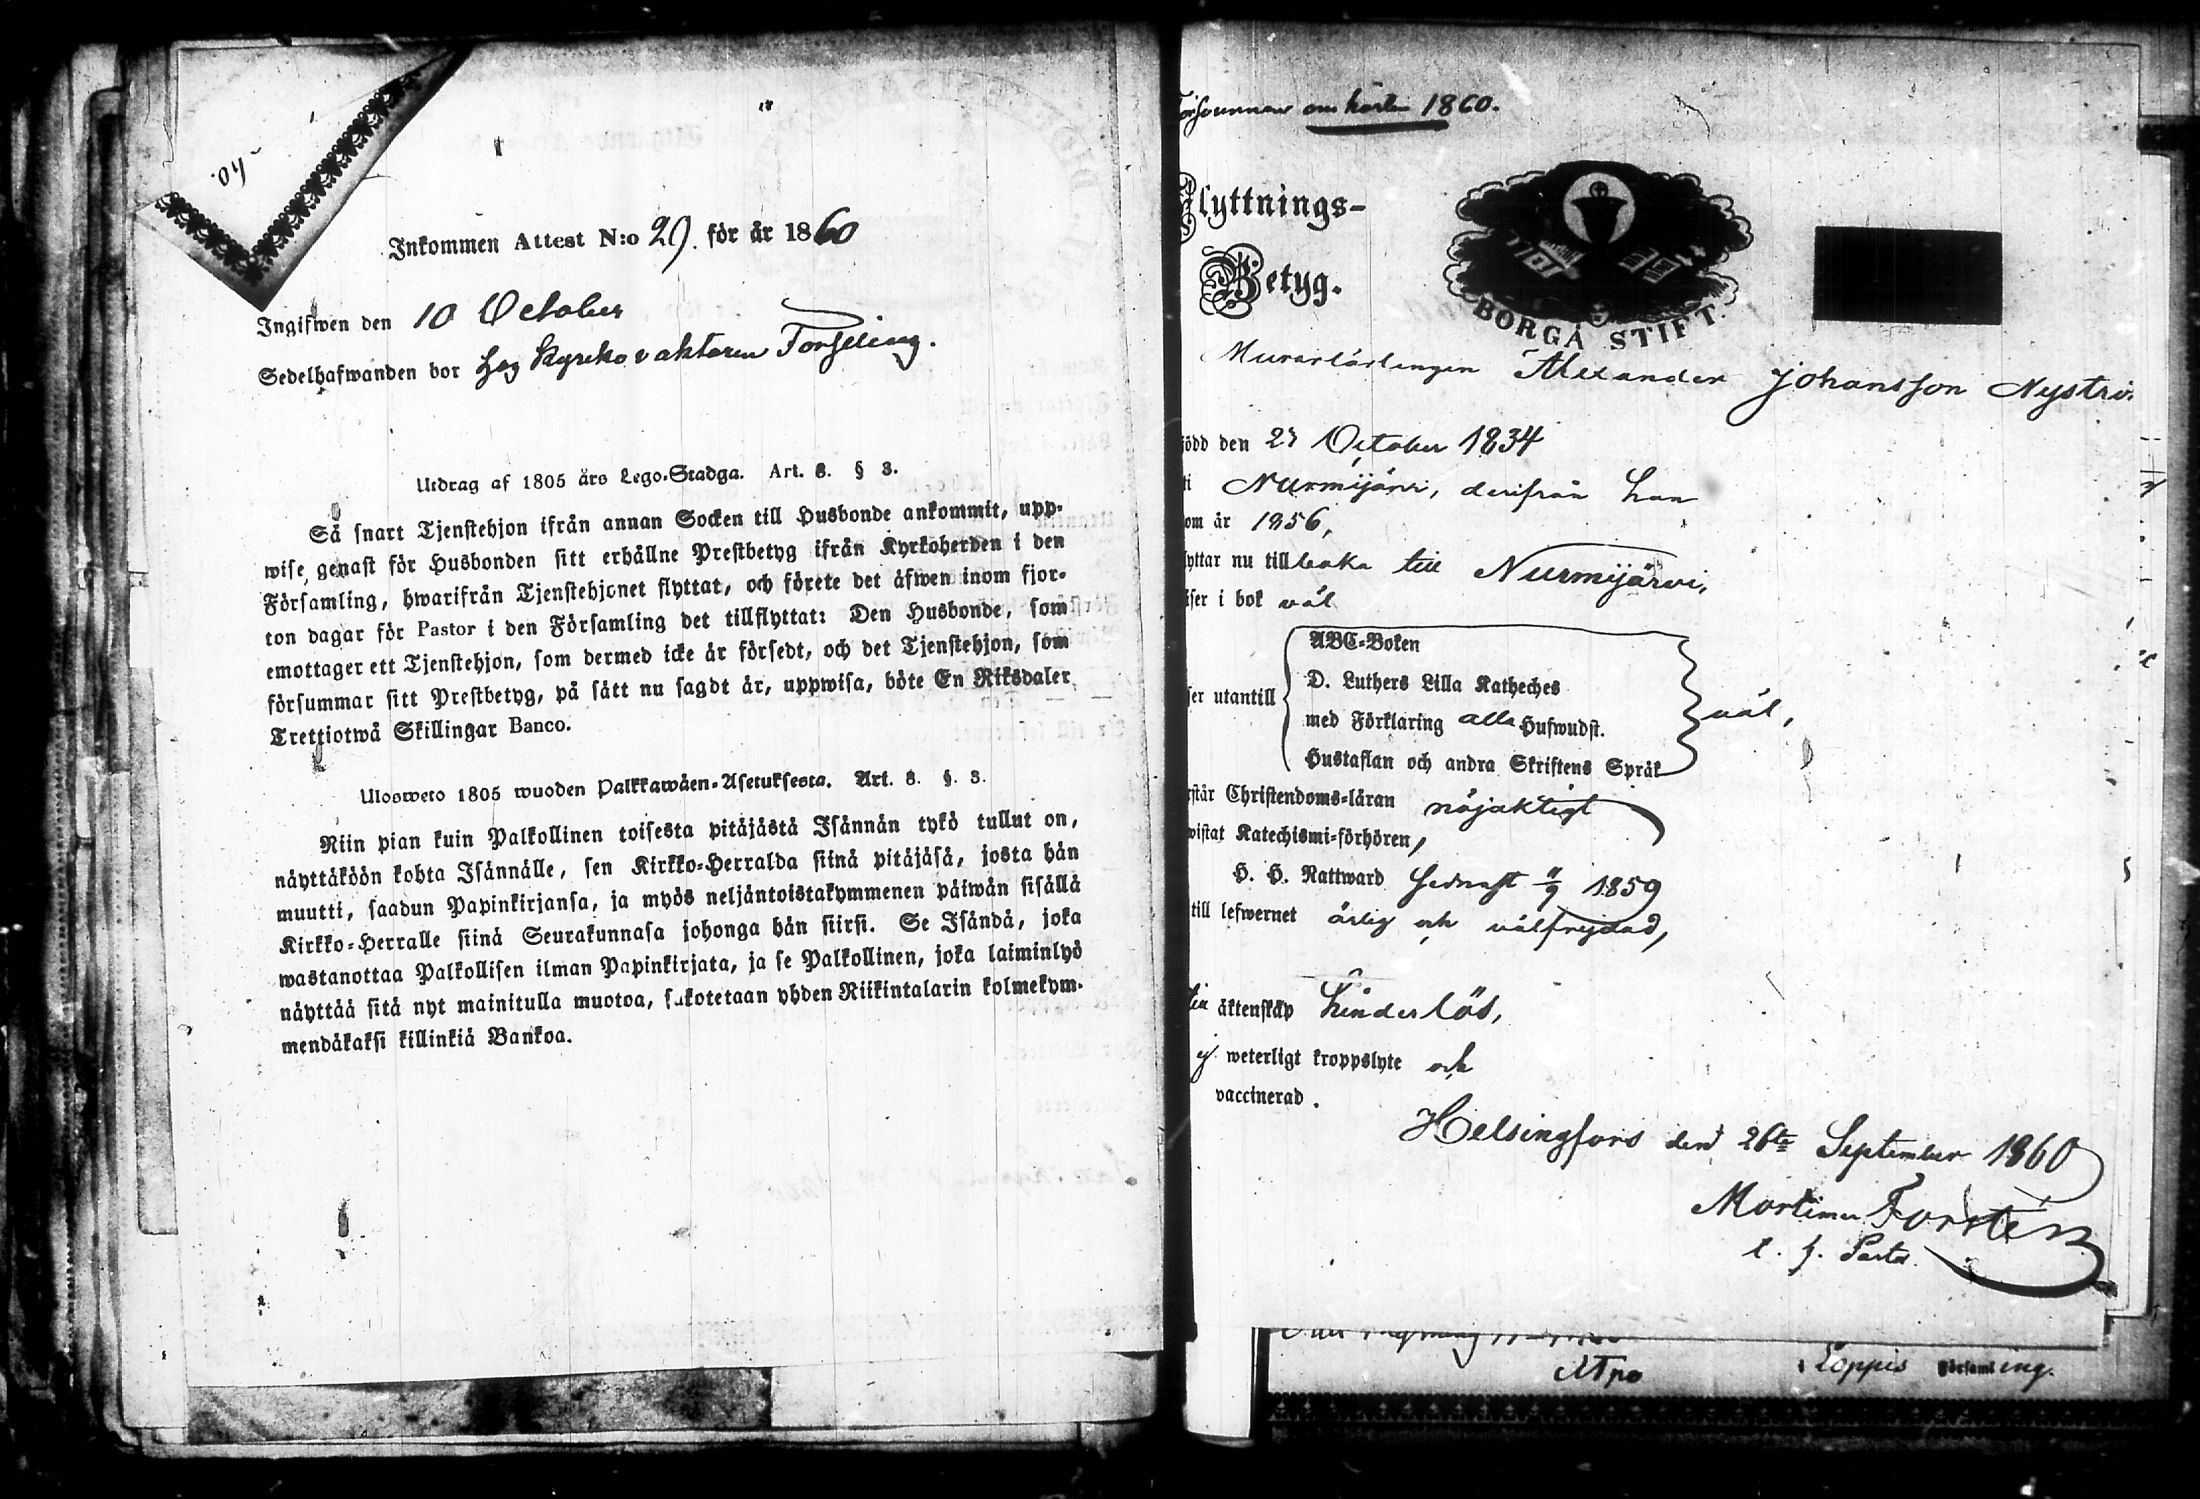 Inkommen Attest N:o 29. för år 1860
Ingifwen den 10 October
Sedelhafwanden bor hos Kyrkovaktaren Forseling.
Utdrag af 1805 års Lego-Stadga. Art. 8. § 3.
Så snart Tjenstehjon ifrån annan Socken till Husbonde ankommit, upp-
wise genast för Husbonden sitt erhållne Prestbetyg ifrån Kyrkoherden i den
Församling, hwarifrån Tjenstehjonet flyttat, och förete det äfwen inom fjor-
ton dagar för Pastor i den Församling det tillflyttat: Den Husbonde, som
emottager ett Tjenstehjon, som dermed icke är försedt, och det Tjenstehjon, som
försummar sitt Prestbetyg, på sätt nu sagdt är, uppwisa, böte En Riksdaler
Trettiotwå Skillingar Banco.
Ulosweto 1805 wuoden Palkkawäen-Asetuksesta. Art. 8. §. 3.
Niin pian kuin Palkollinen toisesta pitäjästä Isännän tykö tullut on,
näyttäköön kohta Isännälle, sen Kirkko-Herralda siinä pitäjäsä, josta hän
muutti, saadun Papinkirjansa, ja myös neljäntoistakymmenen päiwän sisällä
Kirkko-Herralle siinä Seurakunnasa johonga hän siirsi. Se Isändä, joka
wastanottaa Palkollisen ilman Papinkirjata, ja se Palkollinen, joka laiminlyö
näyttää sitä nyt mainitulla muotoa, sakotetaan yhden Riikintalarin kolmekym-
mendäkaksi killinkiä Bankoa.
1860.
Flyttnings-
Betyg.
BORGÅ STIFT.
Murarlärlingen Alexander Johansson Nyströ
född den 27 October 1834
i Nurmijärvi, derifrån han
om år 1856,
lyttar nu tillbaka till Nurmijärvi,
äser i bok väl
ser utantill
ABC-Boken
D. Luthers Lilla Katheches
med Förklaring alla Hufwudst.
Hustaflan och andra Skriftens Språk
väl,
rstår Christendoms-läran nöjaktigt
wistat Katechismi-förhören,
H. H. Nattward sednast 11/9 1859
till lefwernet ärlig och välfrejdad,
till äktenskap hinderlös,
ej weterligt kroppslyte och
vaccinerad.
Helsingfors den 26te September 1860
Mortimer Forstén
t. f. Pastor.
i Loppis Församling.